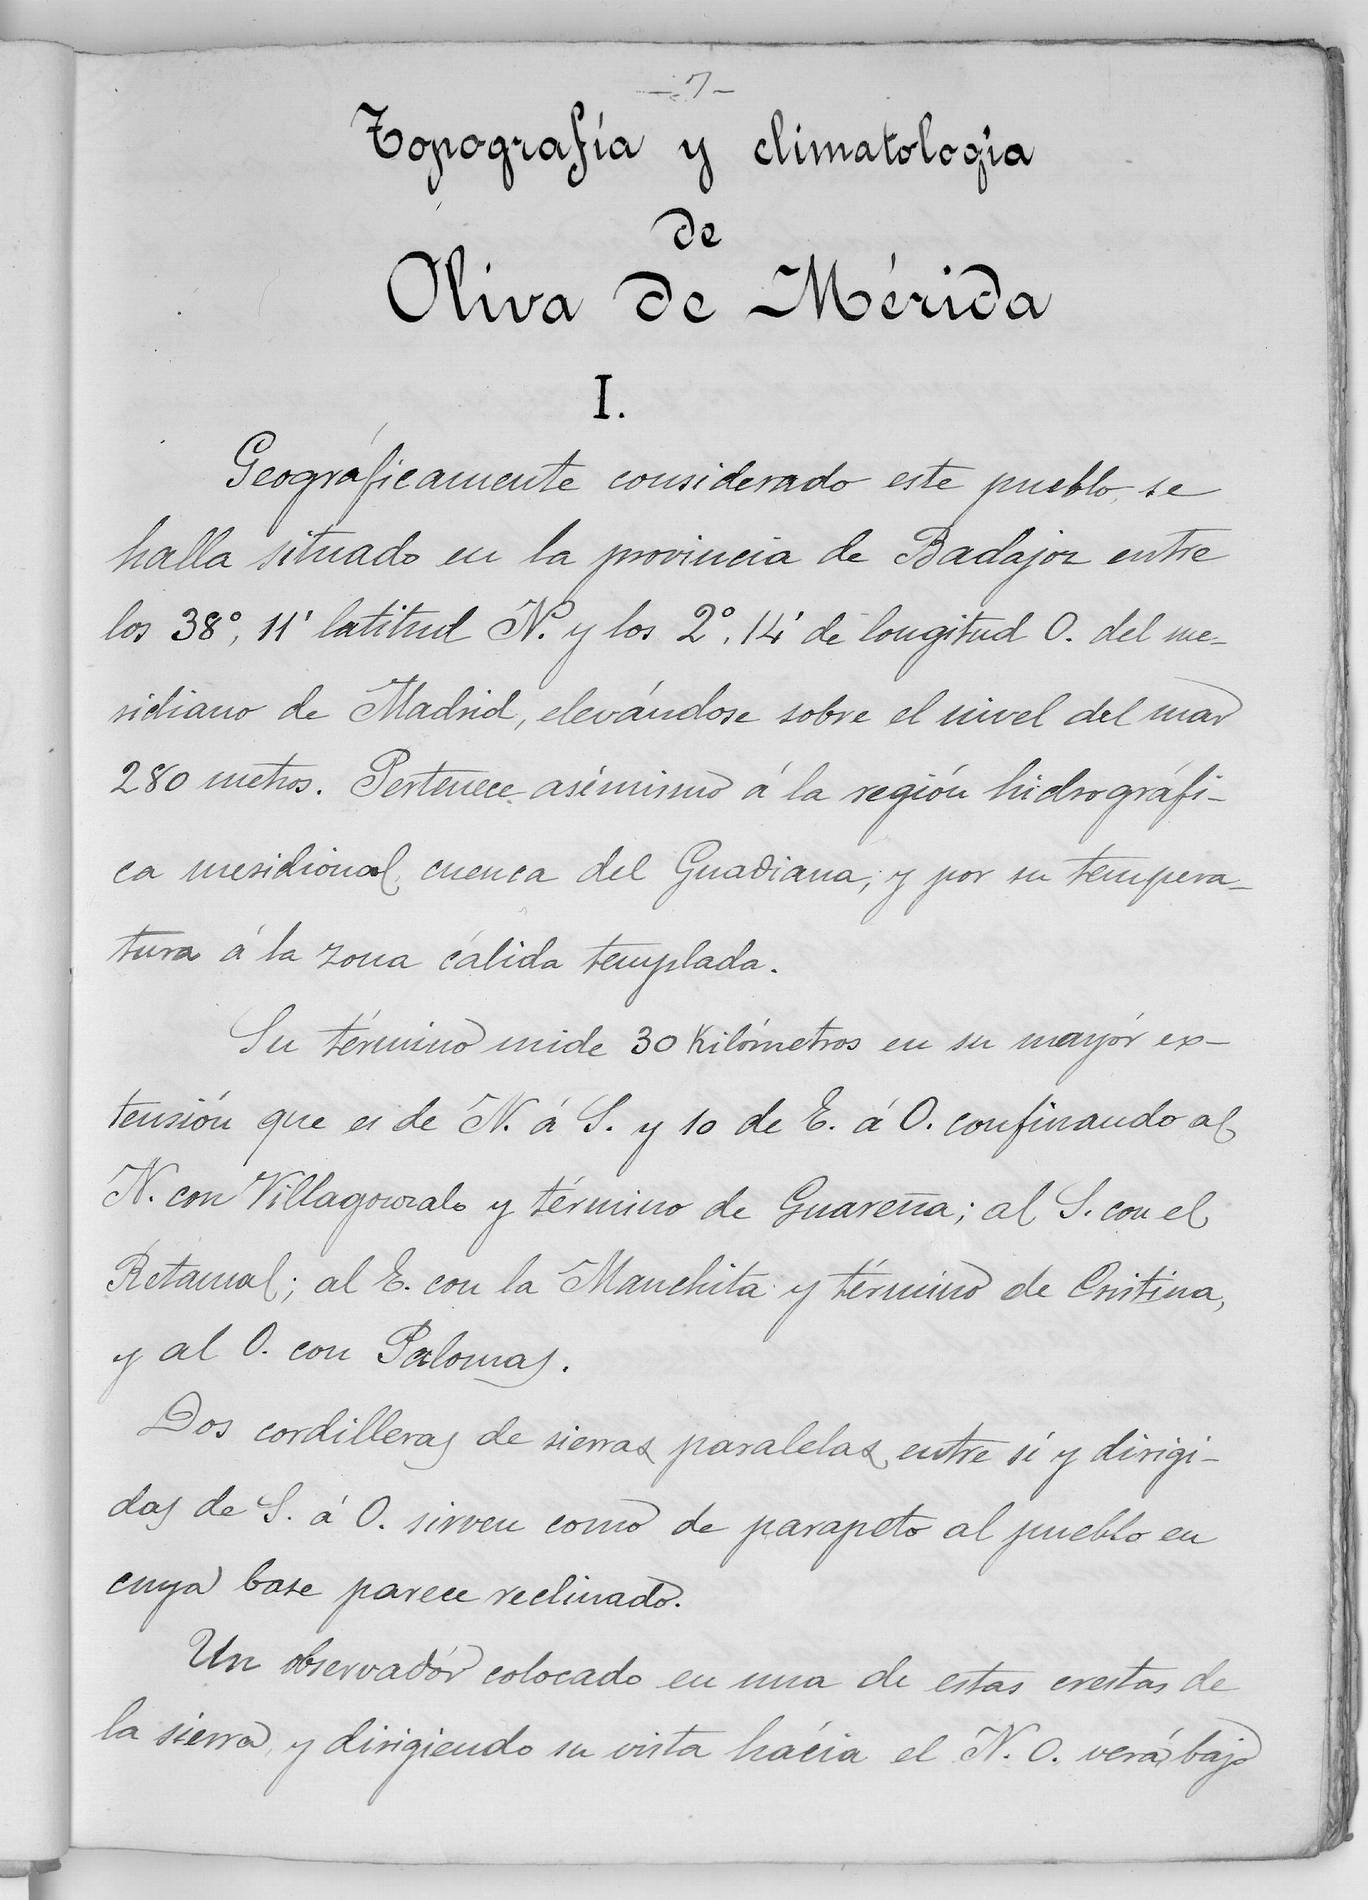 - 7 -
Topografía y climatología
de
Oliva de Mérida
I.
Geográficamente considerado este pueblo, se
halla situado en la provincia de Badajoz entre
los 38°, 11' latitud N. y los 2°, 14' de longitud O. del me-
ridiano de Madrid, elevándose sobre el nivel del mar
280 metros. Pertenece asímismo á la región hidrográfi-
ca meridional, cuenca del Guadiana, y por su tempera-
tura á la zona cálida templada.
Su término mide 30 Kilómetros en su mayór ex-
tensión que es de N. á S. y 10 de E. á O. confinando al
N. con Villagonzalo y término de Guareña; al S. con el
Retamal; al E. con la Manchita y término de Cristina,
y al O. con Palomas.
Dos cordilleras de sierras paralelas entre sí y dirigi-
das de S. á O. sirven como de parapeto al pueblo en
cuya base parece reclinado.
Un observadór colocado en una de estas crestas de
la sierra, y dirigiendo su vista hácia el N. O. verá bajo